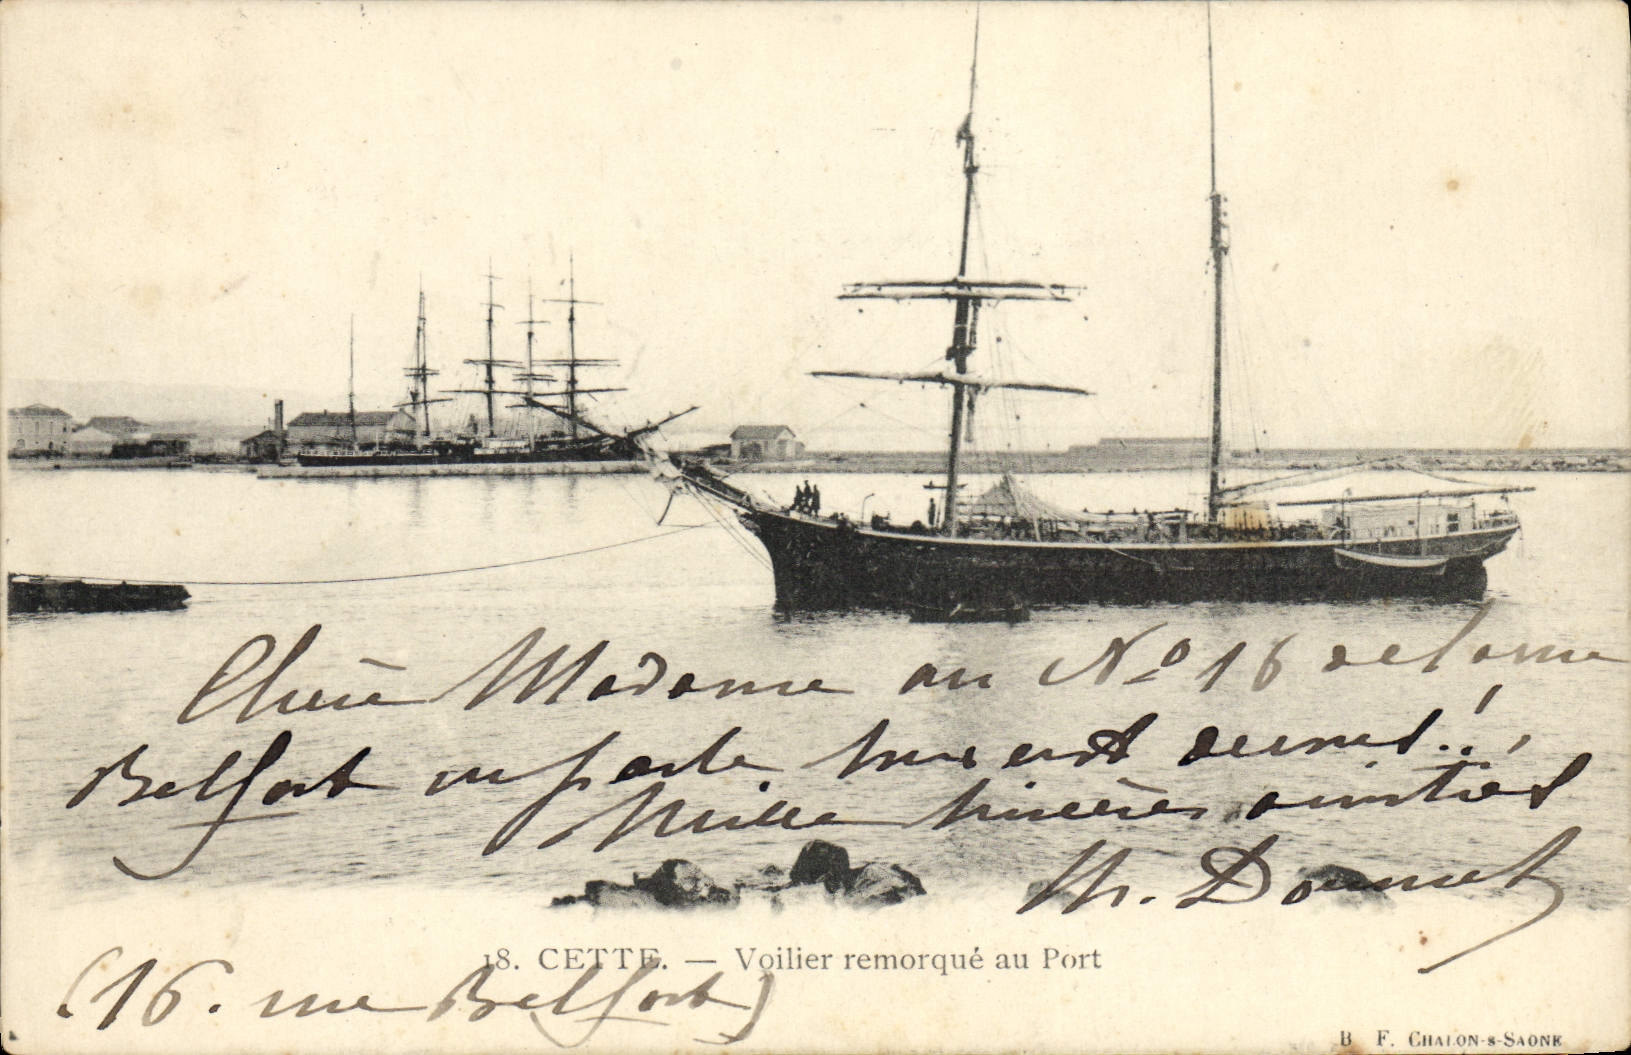 Chère Madame au No 16 de la rue
Belfort on parle souvent de vous..!
Mille sincères amitiés
M. Donnet
18. CETTE. — Voilier remorqué au Port
(16. rue Belfort)
B F. CHALON-s-SAONE